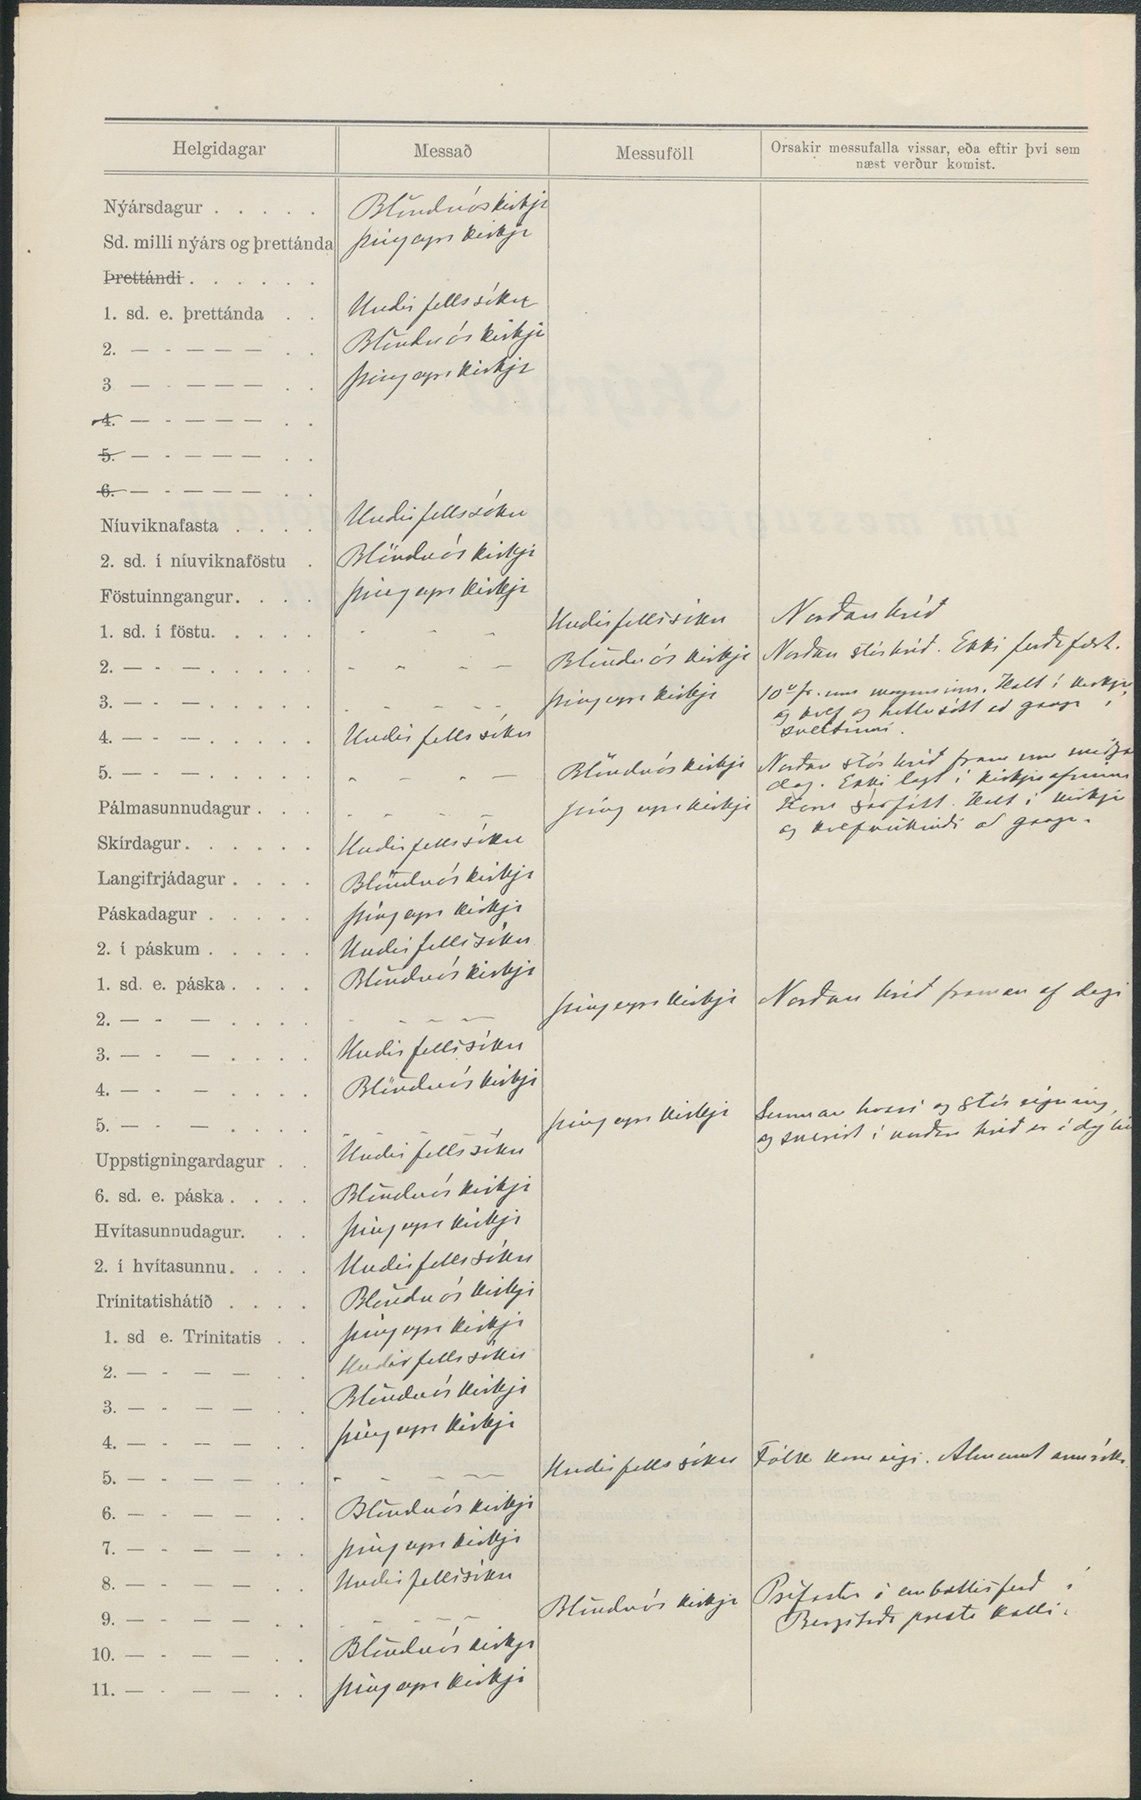 Helgidagar Messað Messuföll Orsakir messufalla vissar, eða eftir því sem
næst verður komist.
Nýársdagur . . . . . Blönduóskirkja
Sd. milli nýárs og þrettánda Þingeyrakirkja
Þrettándi . . . . . .
1. sd. e. þrettánda . . Undirfellssókn
2. — - — — — . . Blönduóskirkja
3 — - — — — . . Þingeyrakirkja
4. — - — — — . .
5. — - — — — . .
6. — - — — — . .
Níuviknafasta . . . . Undirfellssókn
2. sd. í níuviknaföstu . Blönduóskirkja
Föstuinngangur. . . . Þingeyrakirkja
1. sd. í föstu. . . . . - - - - Undirfellssókn Norðanhríð
2. — - — . . . . . - - - - Blönduóskirkja Norðan stórhríð. Ekki ferðafært.
3. — - — . . . . . - - - - Þingeyrakirkja 10° fr. Kalt í kirkju
og kvef og að ganga í
sveitinni.
4. — - — . . . . . Undirfellssókn
5. — - — . . . . . - - - - Blönduóskirkja Norðan stórhríð fram um miðjan
dag. Ekki lagt í
Pálmasunnudagur . . . - - - - Þingeyrakirkja Kalt í kirkju
og að ganga.
Skírdagur. . . . . . Undirfellssókn
Langifrjádagur . . . . Blönduóskirkja
Páskadagur . . . . . Þingeyrakirkja
2. í páskum . . . . . Undirfellssókn
1. sd. e. páska . . . . Blönduóskirkja
2. — - — . . . . - - - - Þingeyrakirkja Norðan hríð framan af degi
3. — - — . . . . Undirfellssókn
4. — - — . . . . Blönduóskirkja
5. — - — . . . . - - - - Þingeyrakirkja Sunnan hvass og stór rigning,
og snerist í norðan hríð er á dag
Uppstigningardagur . . Undirfellssókn
6. sd. e. páska . . . . Blönduóskirkja
Hvítasunnudagur. . . Þingeyrakirkja
2. í hvítasunnu. . . . Undirfellssókn
Trínitatishátíð . . . . Blönduóskirkja
1. sd e. Trínitatis . . Þingeyrakirkja
2. — - — — . . Undirfellssókn
3. — - — — . . Blönduóskirkja
4. — - — — . . Þingeyrakirkja
5. — - — — . . - - - - Undirfellssókn Fólk kom eigi. Almennt annríki
6. — - — — . . Blönduóskirkja
7. — - — — . . Þingeyrakirkja
8. — - — — . . Undirfellssókn
9. — . . - - - - Blönduóskirkja Prófastur í embættisferð í
Bergsstaða prestakalli.
10. — - — — . . Blönduóskirkja
11. — - — — . . Þingeyrakirkja